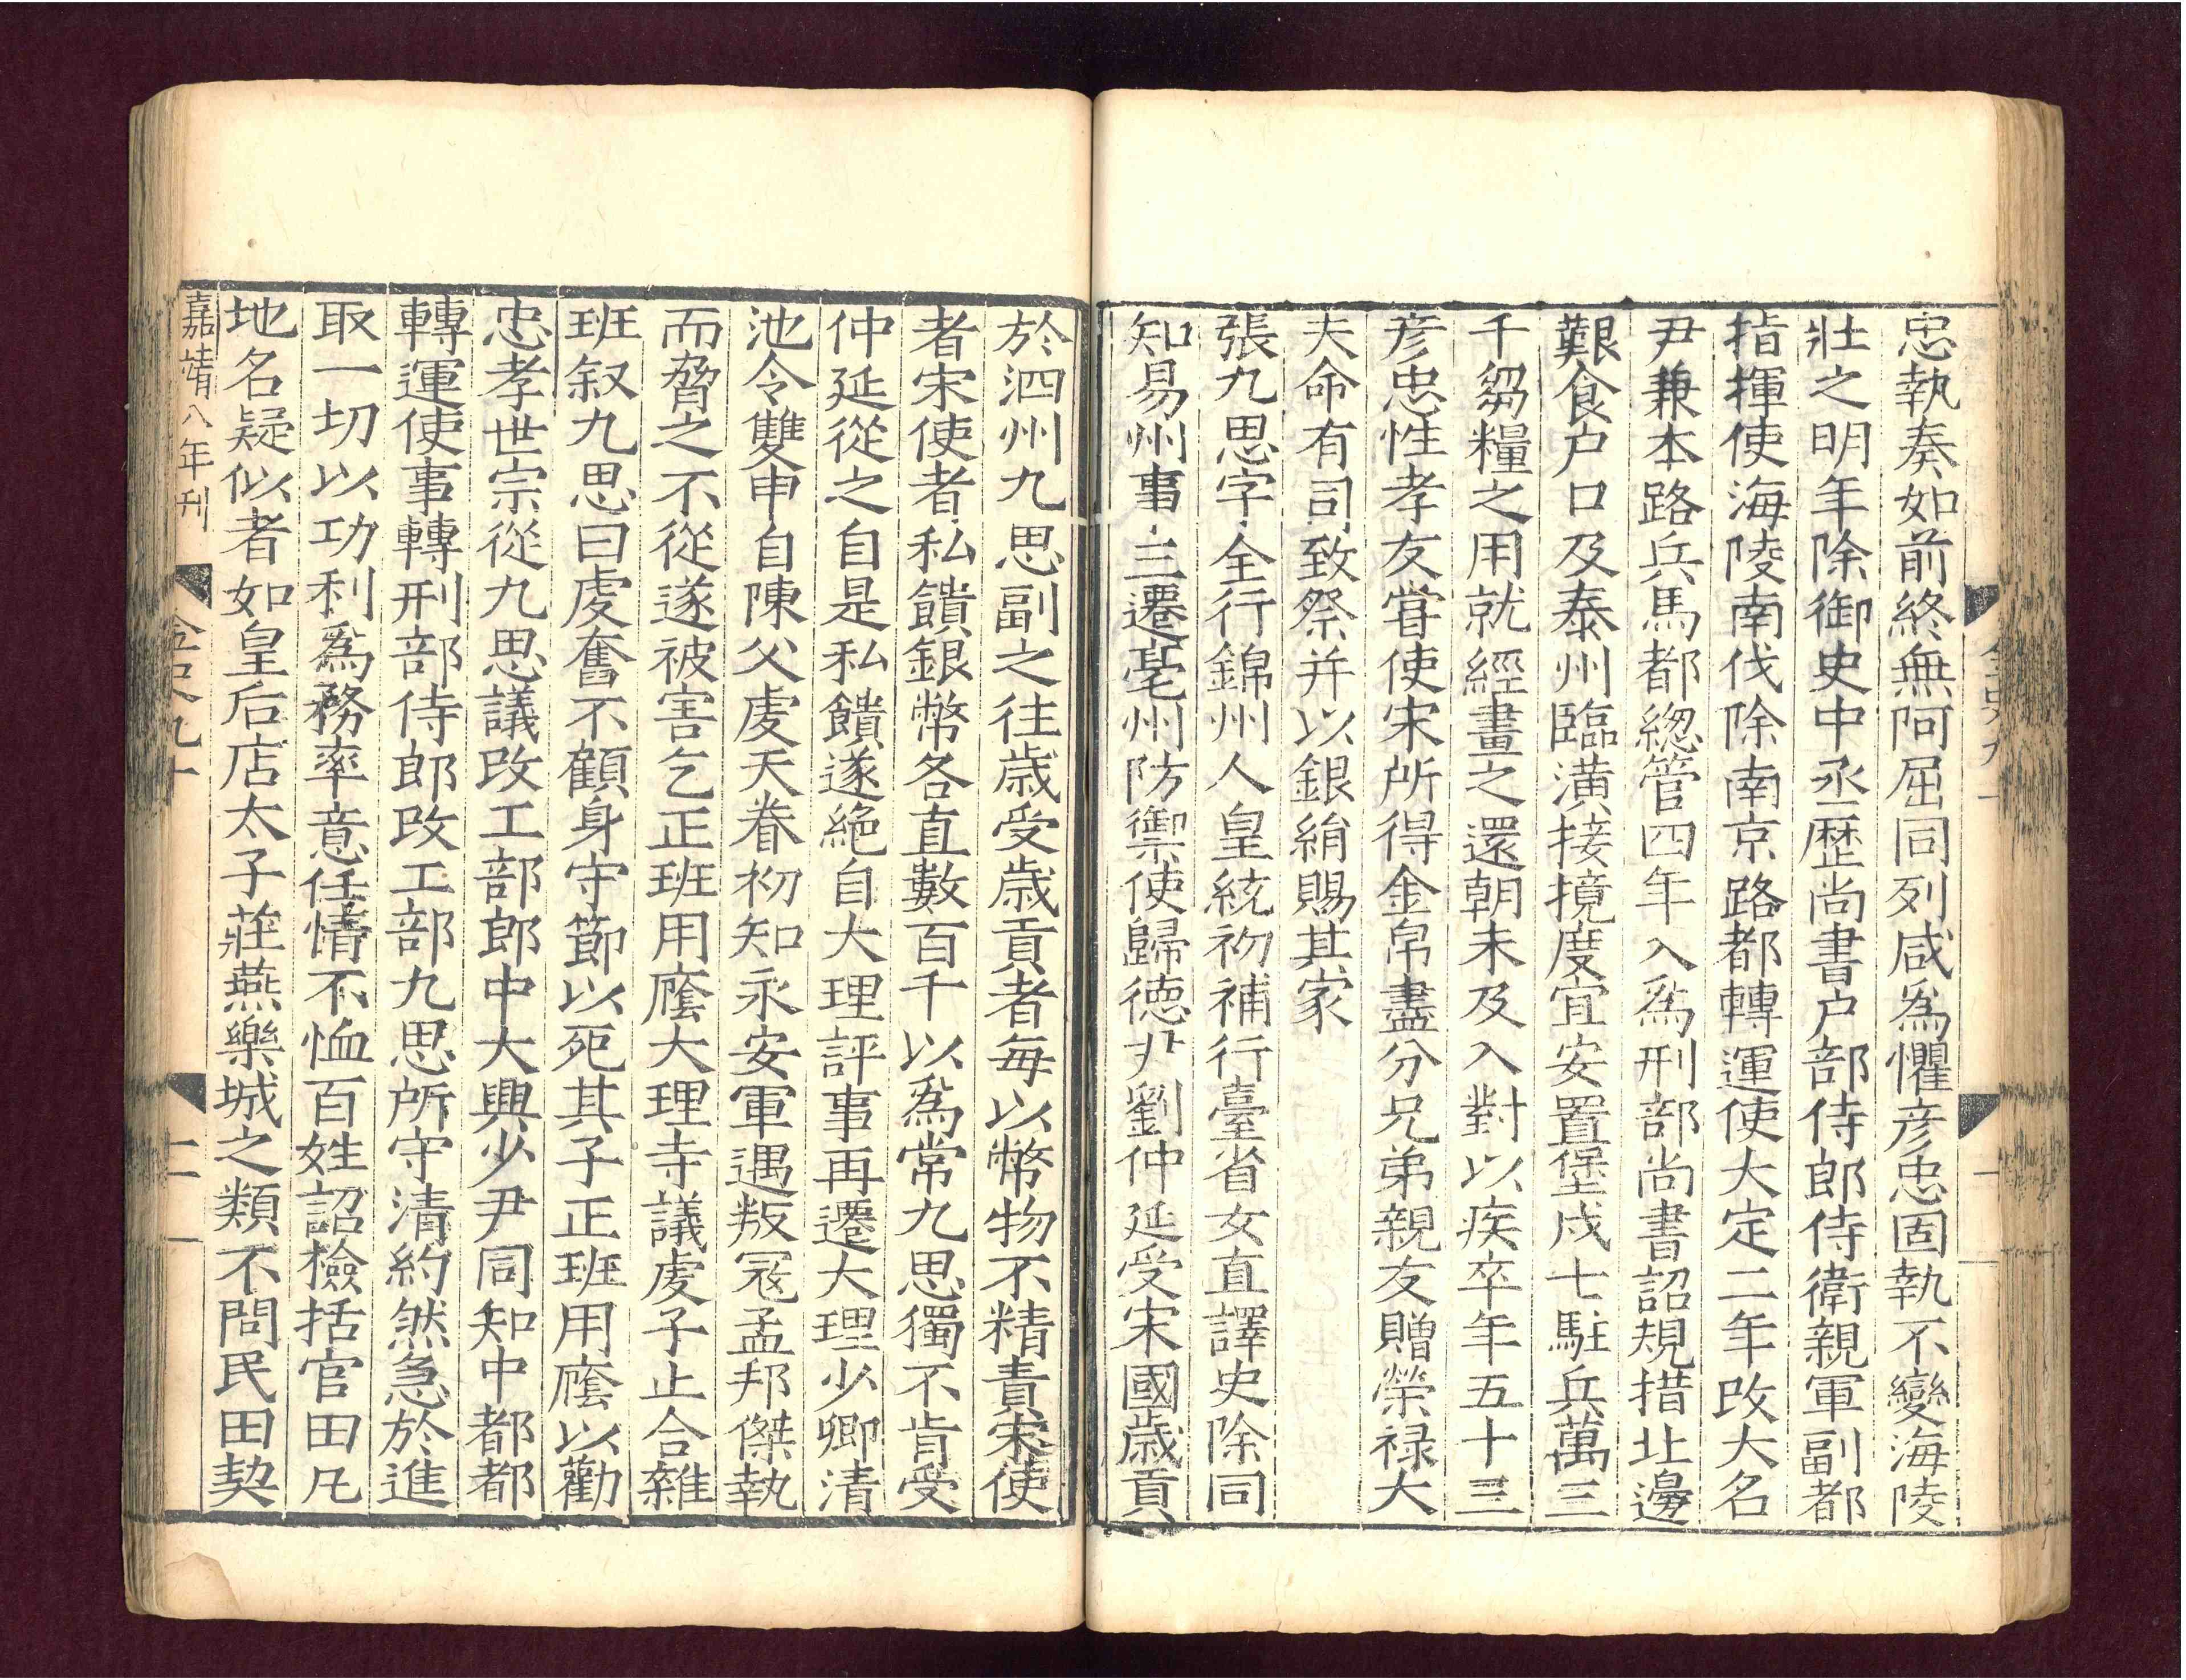 忠執奏如前終無阿屈同列咸爲懼彦忠固執不變海陵
壯之明年除御史中丞歷尚書户部侍郎侍衛親軍副都
指揮使海陵南伐除南京路都轉運使大定二年改大名
尹兼本路兵馬都緫管四年入爲刑部尚書詔規措北邊
艱食户口及泰州臨潢接境度宜安置堡戍七駐兵萬三
千芻糧之用就經畫之還朝未及入對以疾卒年五十三
彦忠性孝友嘗使宋所得金帛盡分兄弟親友贈榮禄大
夫命有司致祭并以銀絹賜其家
張九思字全行錦州人皇統初補行臺省女直譯史除同
知易州事三遷亳州防禦使歸德尹劉仲延受宋國歲貢
於泗州九思副之往歲受歲貢者每以幣物不精責宋使
者宋使者私饋銀幣各直數百千以爲常九思獨不肯受
仲延從之自是私饋遂絶自大理評事再遷大理少卿清
池令雙申自陳父虔天眷初知永安軍遇叛冦孟邦傑執
而脅之不從遂被害乞正班用廕大理寺議虔子止合雜
班叙九思曰虔奮不顧身守節以死其子正班用廕以勸
忠孝世宗從九思議改工部郎中大興少尹同知中都都
轉運使事轉刑部侍郎改工部九思所守清約然急於進
取一切以功利爲務率意任情不恤百姓詔檢括官田凡
地名疑似者如皇后店太子莊燕樂城之類不問民田契
嘉靖八年刊
金史九十
二